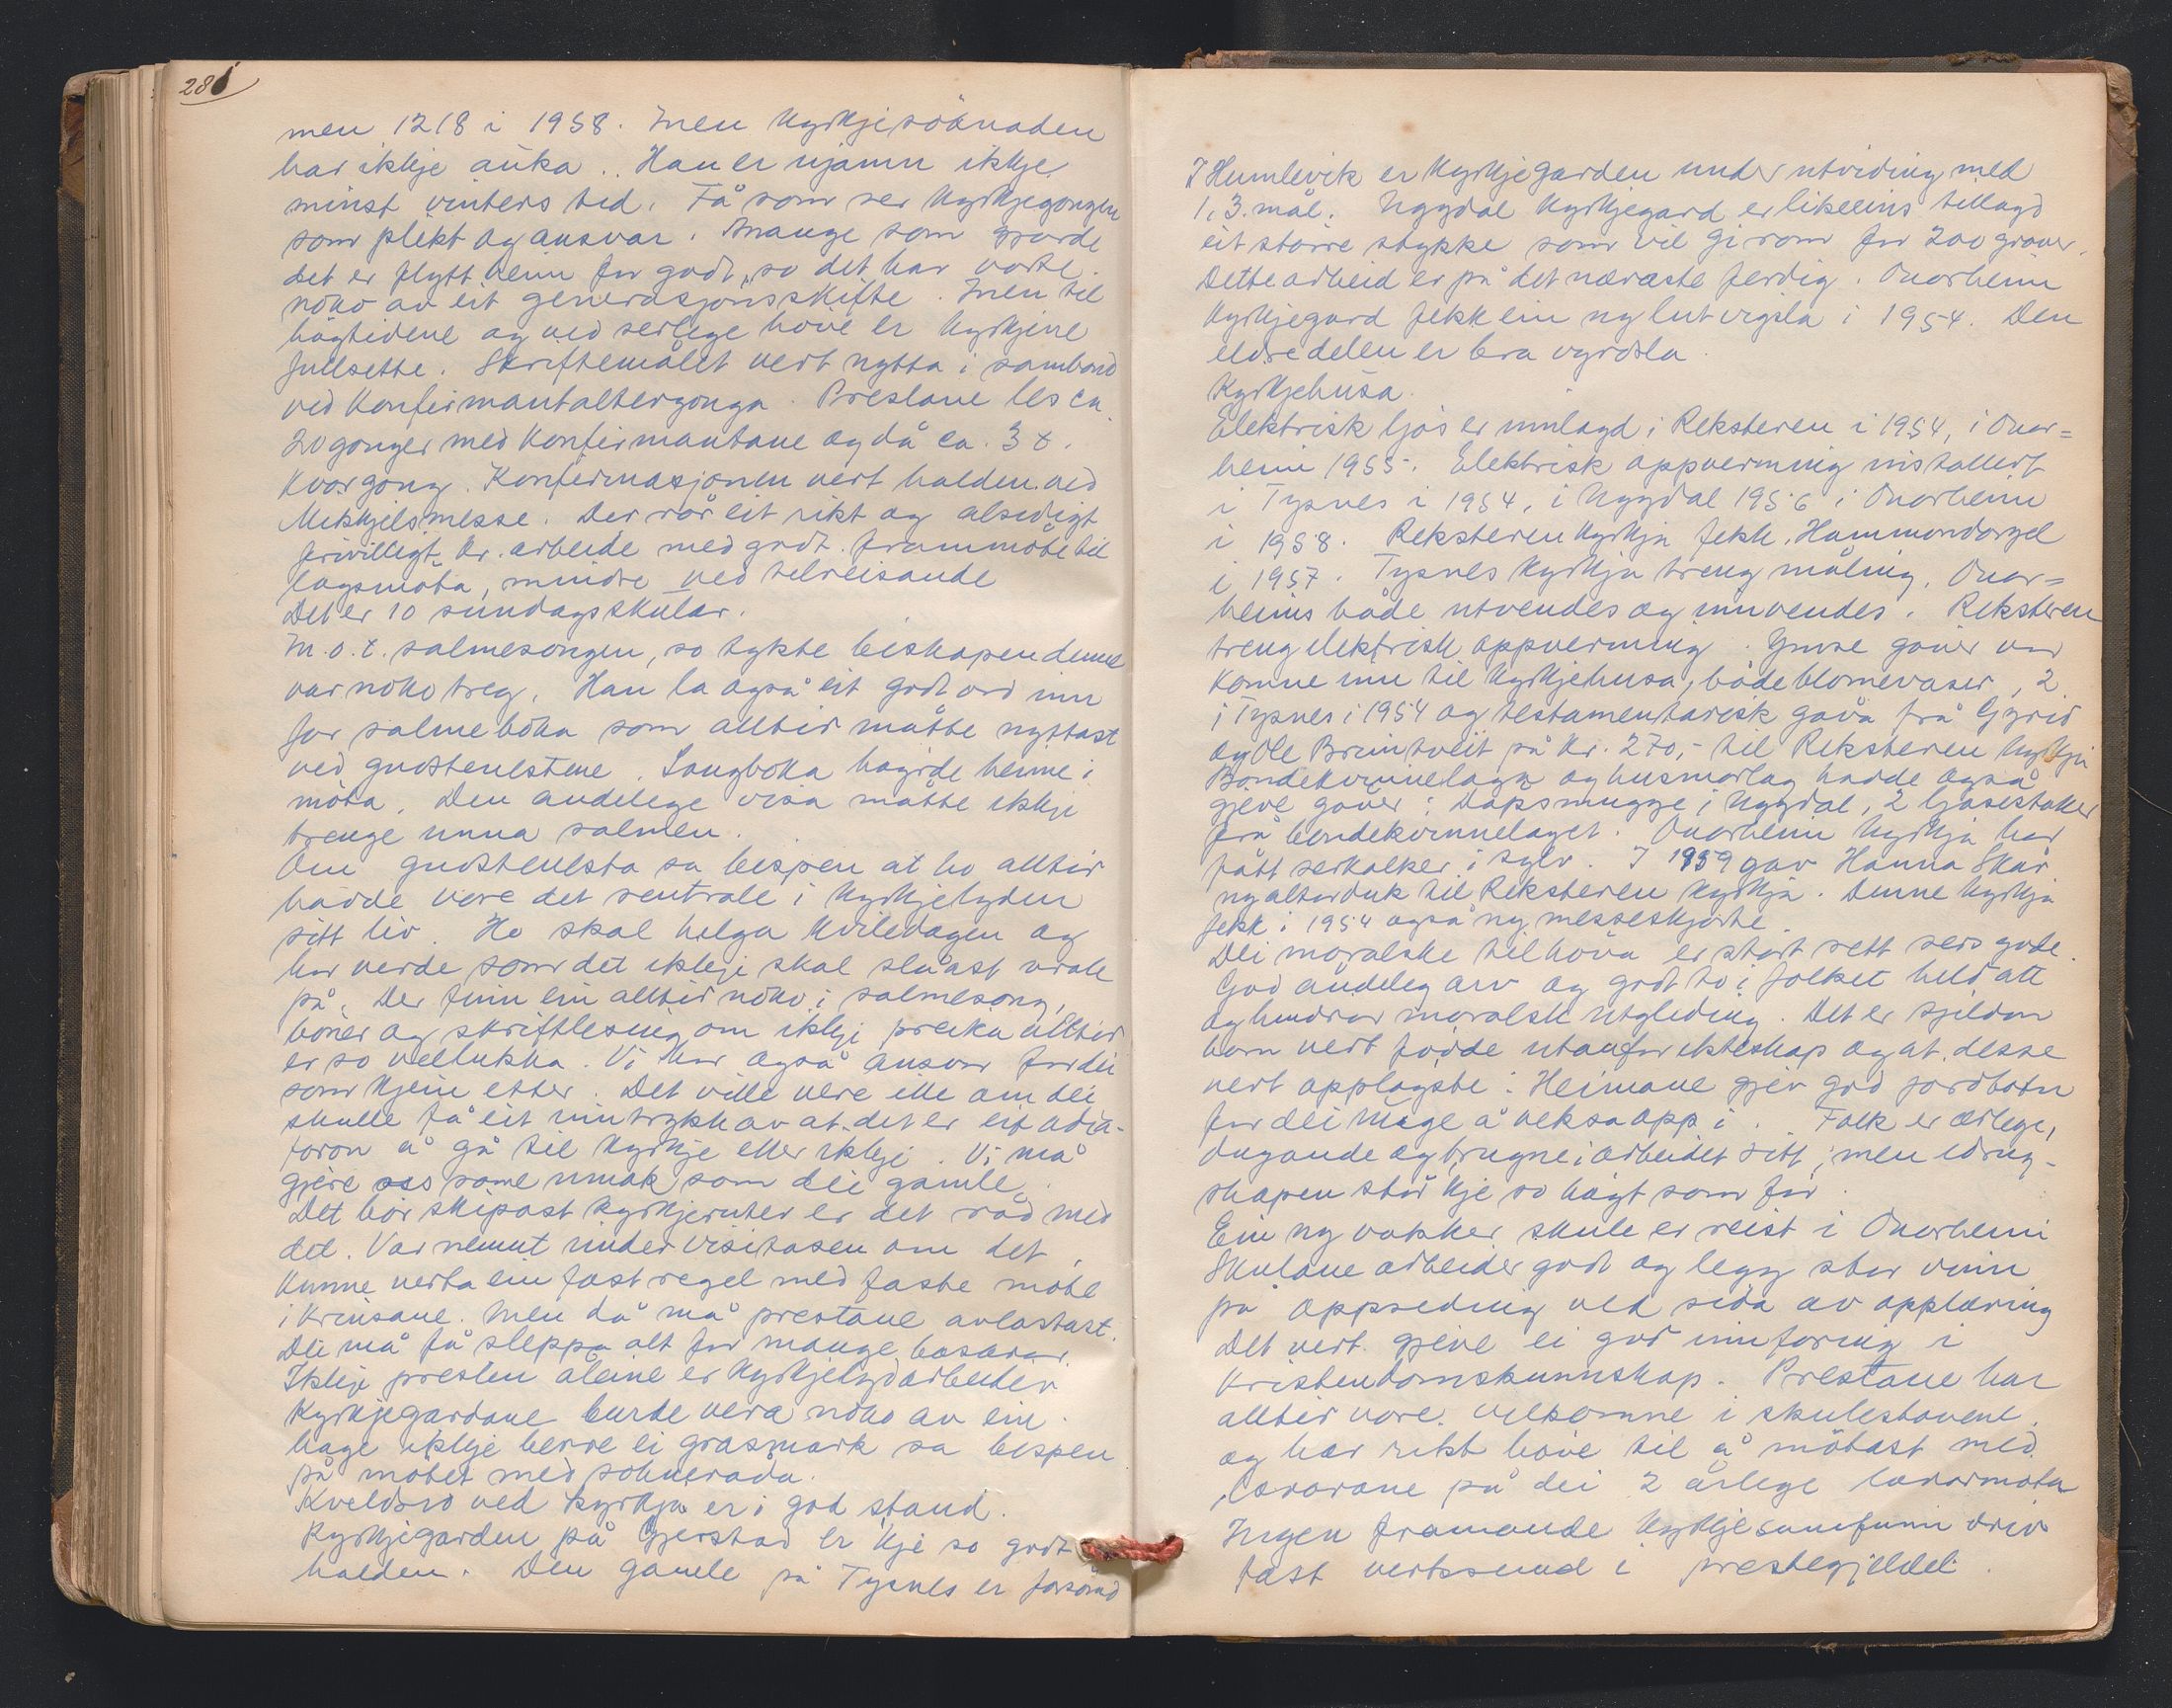 286
men 1218 i 1958. Men kyrkjesöknaden
har ikkje auka.. Han er ujamn ikkje
minst vinters tid. Få som ser kyrkjegongen
som plikt og ansvar. Mange som gjorde
det er flytt heim for godt, so det har vorte
noko av eit generasjonsskifte. Men til
högtidene og ved serlege höve er kyrkjene
fullsette. Skriftemålet vert nytta i samband
ved konfirmantaltergonga. Prestane les ca.
20 gonger med konfirmantane og då ca. 3 t.
kvar gong. Konfirmasjonen vert halden ved
Mikkjelsmesse. Der rår eit rikt og alsidigt
frivilligt kr. arbeide med godt frammöte til
lagsmöta, mindre ved tilreisande
Det er 10 sundagsskular.
M.o.t. salmesongen, so tykte biskopen denne
var noko treg. Han la også eit godt ord inn
for salmeboka som alltid måtte nyttast
ved gudstenestene. Songboka høyrde heime i
möta. Den åndelege visa måtte ikkje
trenge unna salmen.
Om gudstenesta sa bispen at ho alltid
hadde vore det sentrale i kyrkjelyden
sitt liv. Ho skal helga kviledagen og
har verde som det ikkje skal sláast vrak
på. Der finn ein alltid noko i salmesong,
böner og skriftlesing om ikkje preika alltid
er so vellukka. Vi har også ansvar for dei
som kjem etter. Det ville vere ille om dei
skulle få eit inntrykk av at det er eit adia-
foron å gå til kyrkje eller ikkje. Vi må
gjere oss same umak som dei gamle.
Det bör skipast kyrkjeruter er det råd med
det. Var nemnt under visitasen om det
kunne verta ein fast regel med faste möte
i krinsane. Men då må prestane avlastast.
Dei må få sleppa alt for mange basarar.
Ikkje presten åleine er kyrkjelydarbeider
Kyrkjegardane burde vera noko av ein
hage ikkje berre ei grasmark sa bispen
på mötet med sokneråda.
Kveldsro ved kyrkja er i god stand.
Kyrkjegarden på Gjerstad er kje so godt
halden. Den gamle på Tysnes er forsömd
I Humlevik er kyrkjegarden under utviding med
1,3 mål. Uggdal kyrkjegard er likeeins tillagd
eit större stykke som vil gi rom for 200 graver.
Dette arbeid er på det næraste ferdig. Onarheim
kyrkjegard fekk ein ny lut vigsla i 1954. Den
eldre delen er bra vyrdsla.
Kyrkjehusa.
Elektrisk ljos er innlagd i Reksteren i 1954, i Onar=
heim 1955. Elektrisk oppverming installert
i Tysnes i 1954, i Uggdal 1956 i Onarheim
i 1958. Reksteren kyrkja fekk Hammondorgel
i 1957. Tysnes kyrkja treng måling, Onar=
heims både utvendes og innvendes. Reksteren
treng elektrisk oppverming. Ymse gåver var
komne inn til kyrkjehusa, både blomevaser, 2
i Tysnes i 1954 og testamentarisk gåva frå Gyrid
og Ole Breintveit på kr. 270,- til Reksteren kyrkja
Bondekvinnelaga og husmorlag hadde også
gjeve gåver: Dåpsmugge i Uggdal, 2 ljosestaker
frå bondekvinnelaget. Onarheim kyrkja har
fått serkalker i sylv. I 1959 gav Hanna Skår
ny alterduk til Reksteren kyrkja. Denne kyrkja
fekk i 1954 også ny messeskjorte.
Dei moralske tilhöva er stort sett sers gode.
God åndeleg arv og godt to i folket held att
og hindrar moralsk utgliding. Det er sjeldan
born vert födde utanfor ekteskap og at desse
vert opplagste. Heimane gjev god jordbotn
for dei unge å veksa opp i. Folk er ærlege,
dugande og trugne i arbeidet sitt, men edrug-
skapen står kje so högt som för.
Ein ny vakker skule er reist i Onarheim
Skulane arbeider godt og legg stor vinn
på oppseding ved sida av opplæring
Det vert gjeve ei god innföring i
kristendomskunnskap. Prestane har
alltid vore velkomne i skulestovene
og har rikt höve til å mötast med
lærarane på dei 2 årlege lærarmöta
Ingen framande kyrkjesamfunn driv
fast verksemd i prestegjeldet.